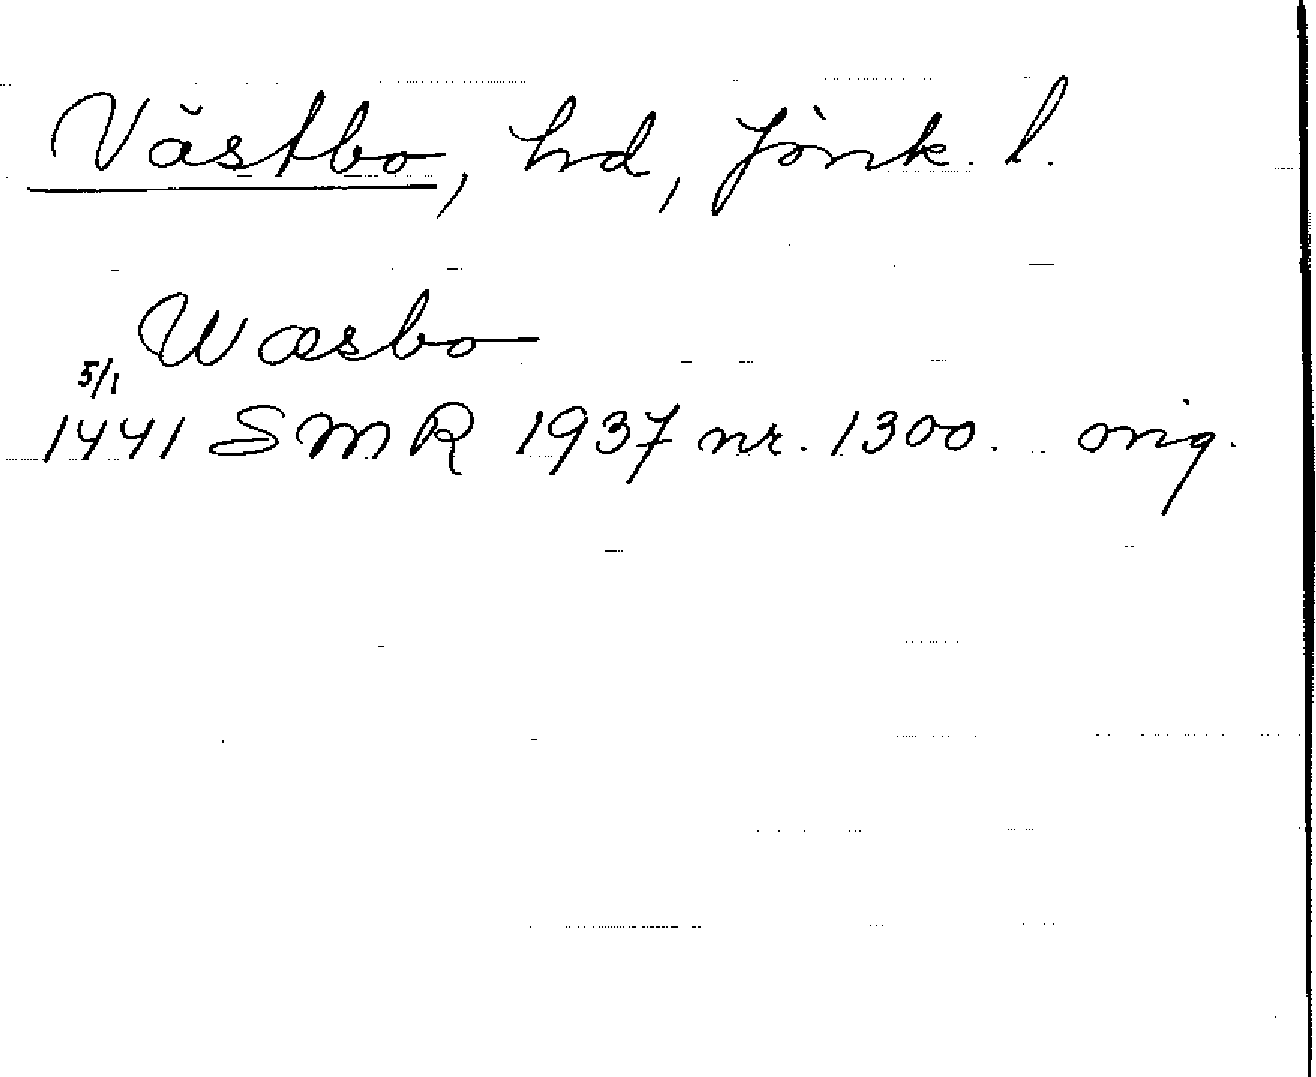 Västbo, hd, Jönk. l.
Wæsbo
5/1
1441 SMR 1937 nr. 1300. orig.